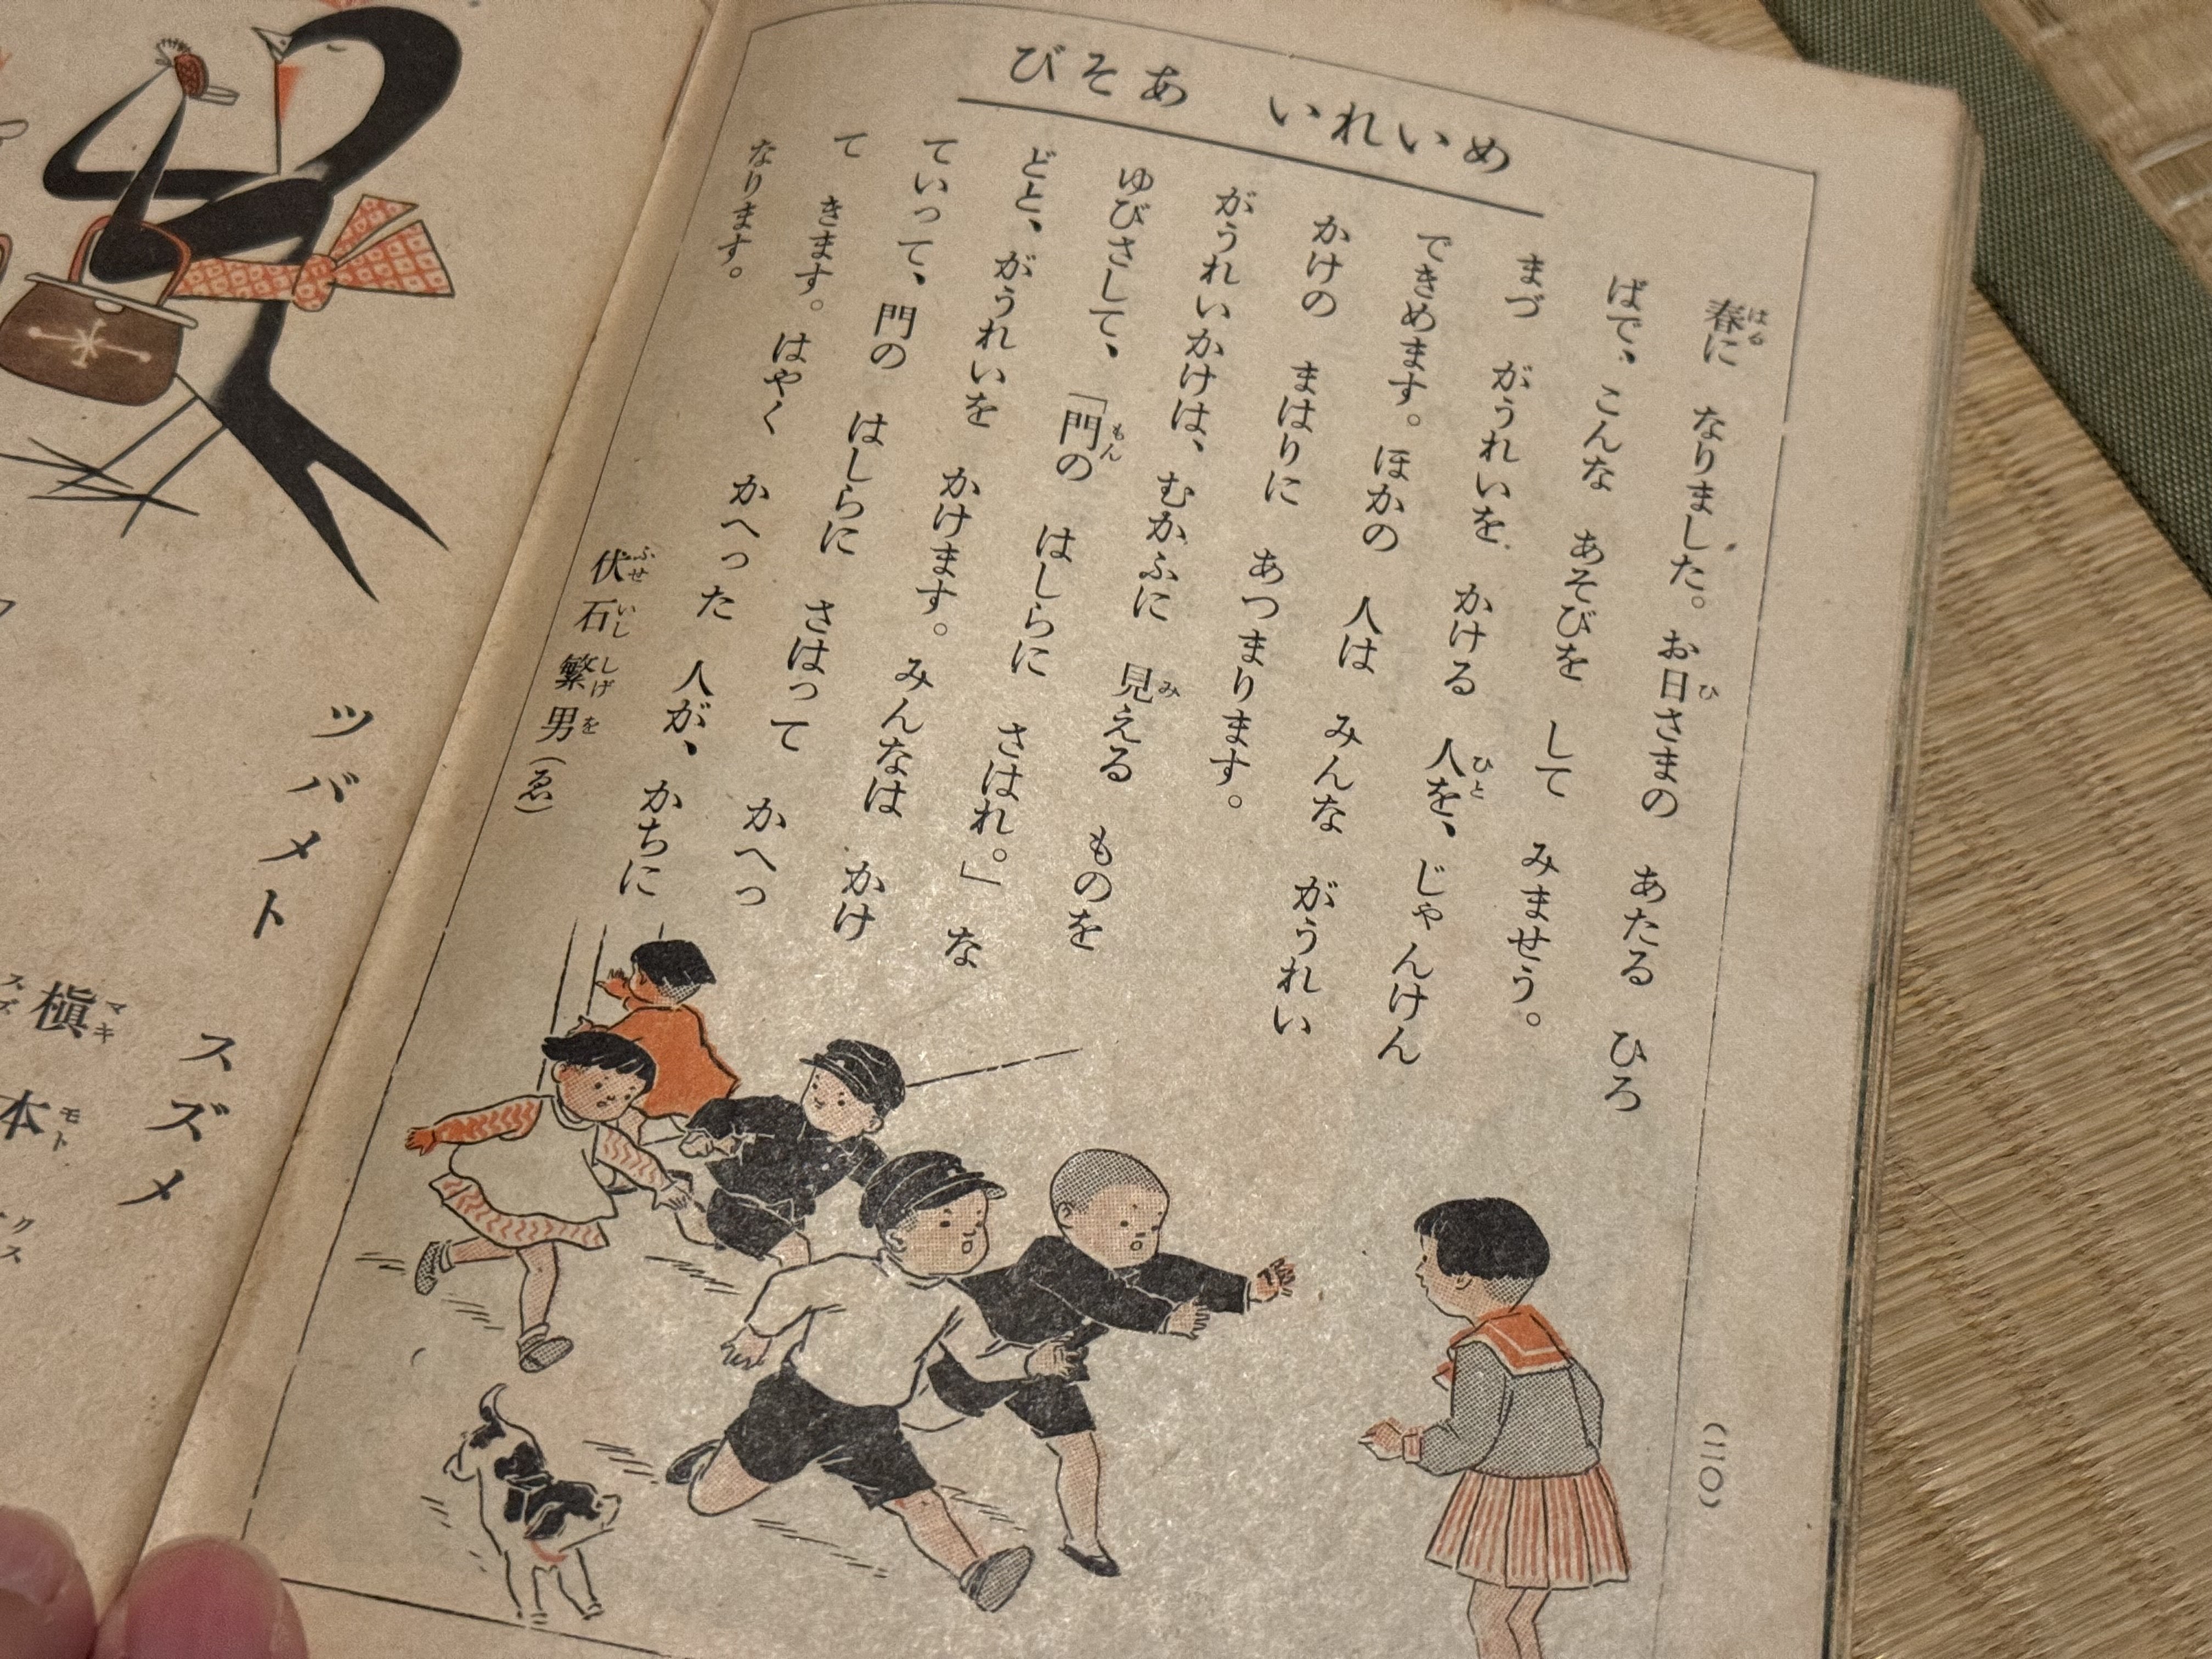 びそあ　いれいめ
春に　なりました。お日さまの　あたる　ひろ
はる　ひ
ばで、こんな　あそびを　して　みませう。
まづ　がうれいを　かける　人を、じゃんけん
ひと
できめます。ほかの　人は　みんな　がうれい
かけの　まはりに　あつまります。
がうれいかけは、むかふに　見える　ものを
み
ゆびさして、「門の　はしらに　さはれ。」な
もん
どと、がうれいを　かけます。みんなは　かけ
ていって、門の　はしらに　さはって　かへっ
て　きます。はやく　かへった　人が、かちに
なります。
伏石繁男(ゑ)
ふせいししげを
(二〇)
ツバメト
スズメ
槇本
マキモト